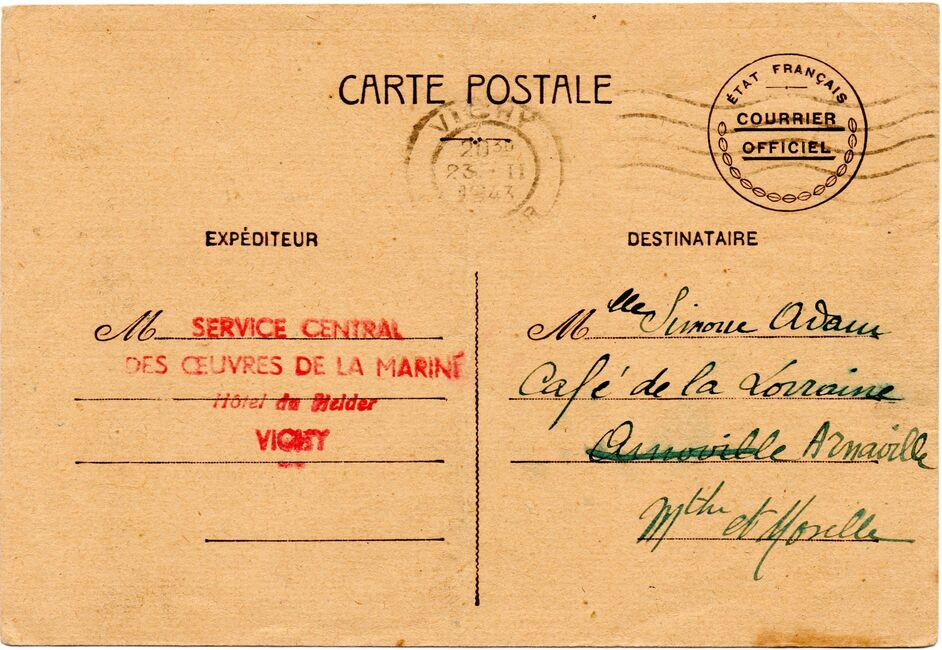 CARTE POSTALE
ÉTAT FRANÇAIS
COURRIER
OFFICIEL
VICHY
20 30
23 - II
1943
EXPÉDITEUR
M SERVICE CENTRAL
DES ŒUVRES DE LA MARINE
Hôtel du Helder
VICHY
DESTINATAIRE
Mlle Simone Adam
Café de la Lorraine
Arnoville Arnaville
Mthe et Moselle